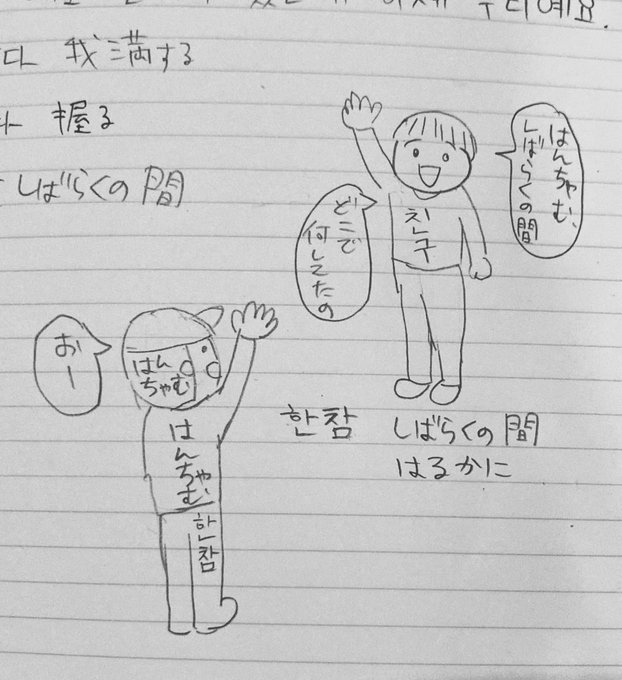 예요.
다 我満する
握る
しばらくの間
はんちゃむ、
しばらくの間
どこで
何してたの
친구
おー
はん
ちゃむ
はんちゃむ、
한참
한참 しばらくの間
はるかに